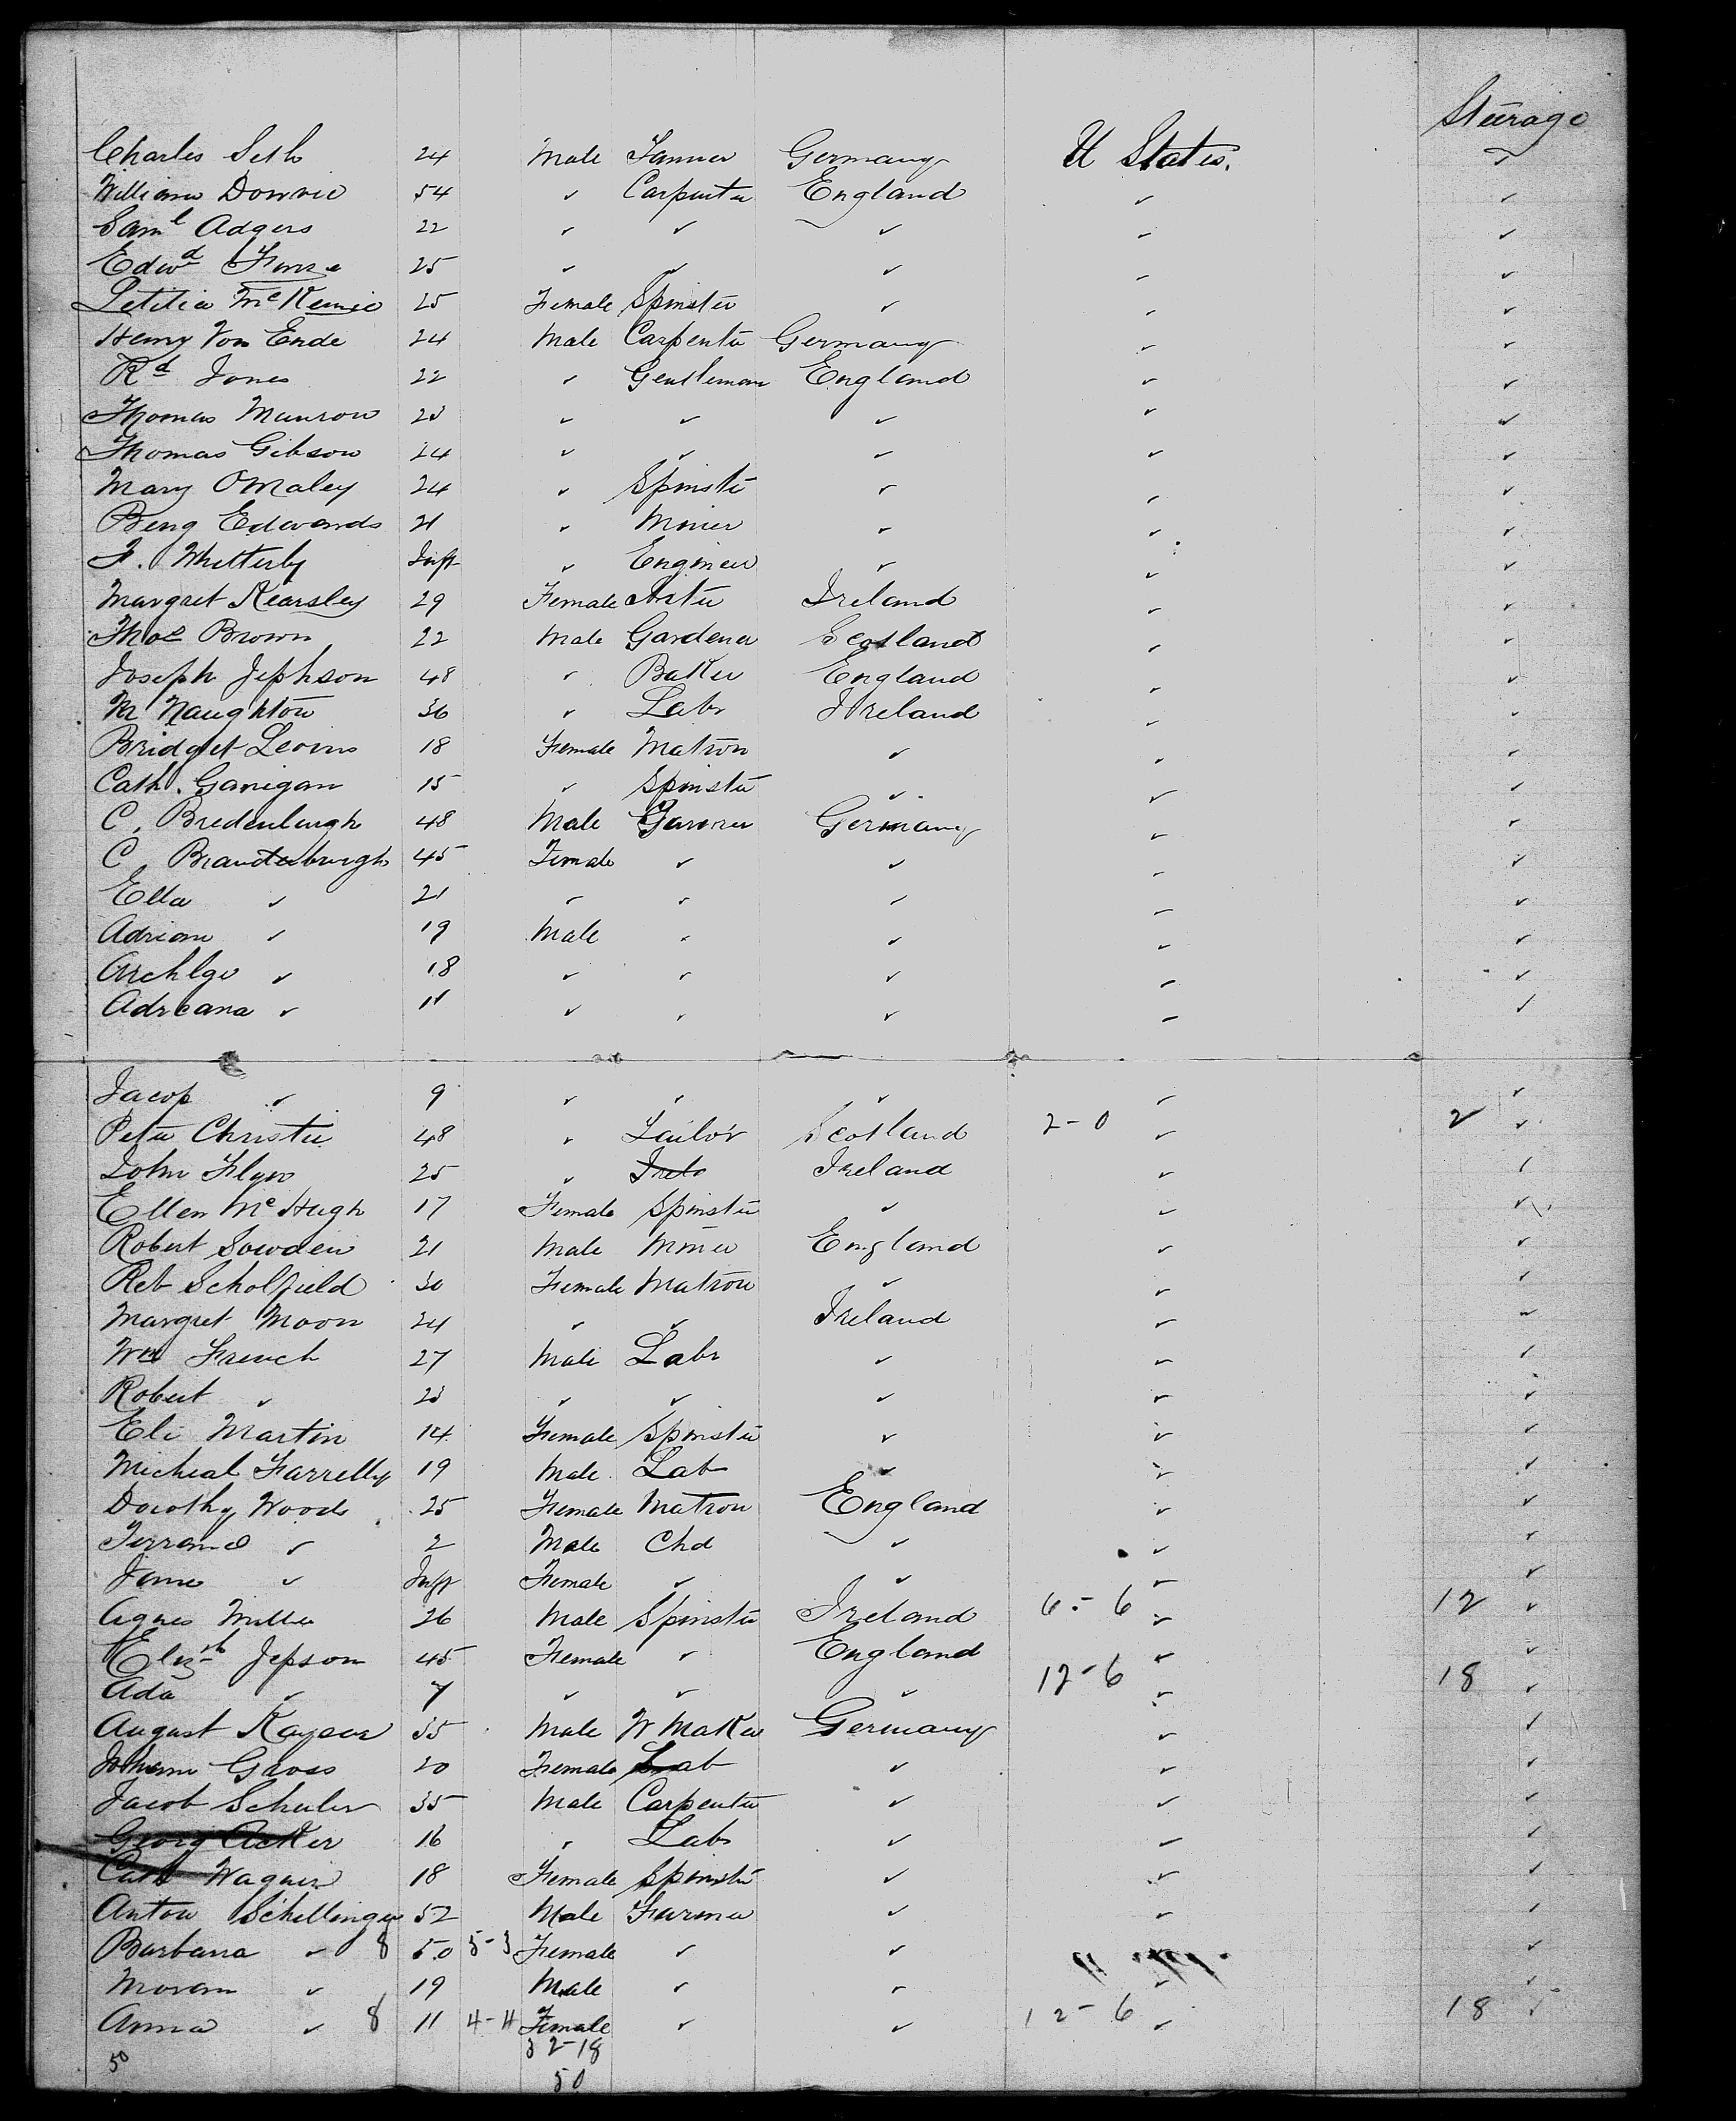 Steerage
Charles Seth 24 Male Tanner Germany U States.
William Downie 54 ✓ Carpenter England ✓ ✓
Saml Adgers 22 ✓ ✓ ✓ ✓ ✓
Edwd 25 ✓ ✓ ✓ ✓ ✓
Letitia McKenzie 25 Female Spinster ✓ ✓ ✓
Henry Von Ende 24 Male Carpenter Germany ✓ ✓
Rd Jones 22 ✓ Gentleman England ✓ ✓
Thomas Munrow 23 ✓ ✓ ✓ ✓ ✓
Thomas Gibson 24 ✓ ✓ ✓ ✓ ✓
Mary OMaley 24 ✓ Spinster ✓ ✓ ✓
Benj Edwards 21 ✓ Minier ✓ ✓ ✓
F. Whetterly Inft ✓ Engineer ✓ ✓ ✓
Margret Kearsley 29 Female Ireland ✓ ✓
Thos Brown 22 Male Gardener Scotland ✓ ✓
Joseph Jephson 48 ✓ Baker England ✓ ✓
M Naughton 36 ✓ Labr Ireland ✓ ✓
Bridget 18 Female Matron ✓ ✓ ✓
Cath. Garrigan 15 ✓ Spinster ✓ ✓ ✓
C. Bredenburgh 48 Male Germany ✓ ✓
C. Brandenburgh 45 Female ✓ ✓ ✓ ✓
Ella ✓ 21 ✓ ✓ ✓ ✓ ✓
Adriane ✓ 19 Male ✓ ✓ ✓ ✓
Archlge ✓ 18 ✓ ✓ ✓ ✓ ✓
Adreana ✓ 11 ✓ ✓ ✓ ✓ ✓
Jacop ✓ 9 ✓ ✓ ✓ ✓ ✓
Peter Christie 48 ✓ Tailor Scotland 2-0 ✓ 2 ✓
John Flyn 25 ✓ Irela Ireland ✓ ✓
Ellen McHugh 17 Female Spinster ✓ ✓ ✓
Robert Sowden 21 Male Miner England ✓ ✓
Reb Scholfield 30 Female Matron ✓ ✓ ✓
Margret Moon 24 ✓ ✓ Ireland ✓ ✓
Wm French 27 Male Labr ✓ ✓ ✓
Robert ✓ 23 ✓ ✓ ✓ ✓ ✓
Eli Martin 14 Female Spinster ✓ ✓ ✓
Micheal Farrelly 19 Male Lab ✓ ✓ ✓
Dorothy Wood 25 Female Matron England ✓ ✓
✓ 2 Male Chd ✓ ✓ ✓
Jane ✓ Inft Female ✓ ✓ ✓ ✓
Agnes Miller 26 Male Spinster Ireland 6-6 ✓ 12 ✓
Elizth Jepson 45 Female ✓ England ✓ ✓
Ada ✓ 7 ✓ ✓ ✓ 12-6 ✓ 18 ✓
August Kayser 35 Male W Maker Germany ✓ ✓
Johann Gross 20 Female Lab ✓ ✓ ✓
Jacob Schuler 35 Male Carpenter ✓ ✓ ✓
Georg Acker 16 ✓ Lab ✓ ✓ ✓
Cath Wagner 18 Female Spinster ✓ ✓ ✓
Anton Schellinger 52 Male Farmer ✓ ✓ ✓
Barbara ✓ 8 50 5-3 Female ✓ ✓ ✓
✓ 19 Male ✓ ✓ ✓ ✓
Anna ✓ 8 11 4-4 Female ✓ ✓ 12-6 ✓ 18 ✓
32-18
50 50